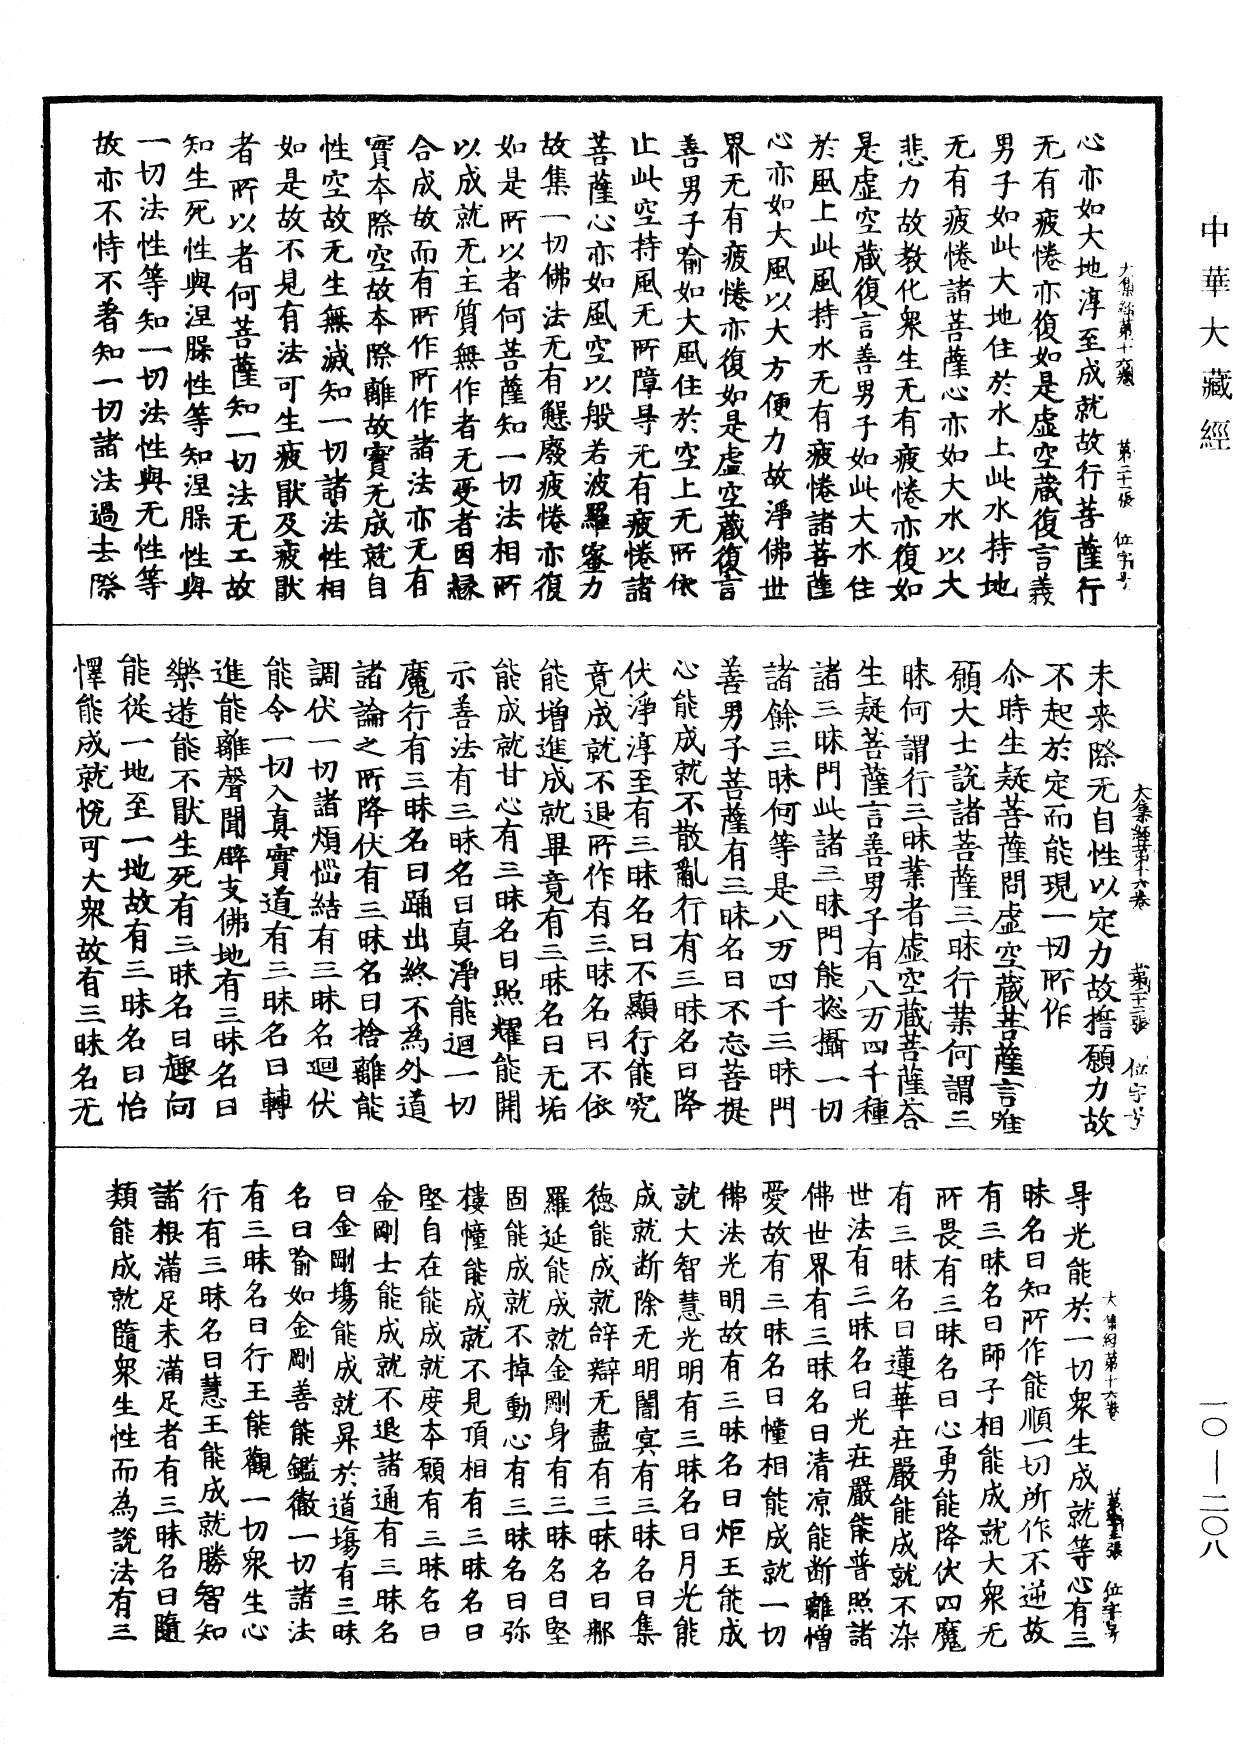 中華大藏經
大集經第十六卷 第二十一張 位字号
心亦如大地淳至成就故行菩薩行
无有疲惓亦復如是虛空藏復言義
男子如此大地住於水上此水持地
无有疲惓諸菩薩心亦如大水以大
悲力故教化衆生无有疲惓亦復如
是虛空藏復言善男子如此大水住
於風上此風持水无有疲惓諸菩薩
心亦如大風以大方便力故淨佛世
界无有疲惓亦復如是虛空藏復言
善男子喻如大風住於空上无所依
止此空持風无所障㝵无有疲惓諸
菩薩心亦如風空以般若波羅蜜力
故集一切佛法无有懈廢疲惓亦復
如是所以者何菩薩知一切法相所
以成就无主質無作者无受者因縁
合成故而有所作所作諸法亦无有
實本際空故本際離故實无成就自
性空故无生無滅知一切諸法性相
如是故不見有法可生疲猒及疲猒
者所以者何菩薩知一切法无工故
知生死性與涅槃性等知涅槃性與
一切法性等知一切法性與无性等
故亦不恃不著知一切諸法過去際
大集經第十六卷 第二十二張 位字号
未来際无自性以定力故擔願力故
不起於定而能現一切所作
尒時生疑菩薩問虛空藏菩薩言唯
願大士説諸菩薩三昧行業何謂三
昧何謂行三昧業者虛空藏菩薩荅
生疑菩薩言善男子有八万四千種
諸三昧門此諸三昧門能揔攝一切
諸餘三昧何等是八万四千三昧門
善男子菩薩有三昧名曰不忘菩提
心能成就不散亂行有三昧名曰降
伏淨淳至有三昧名曰不顯行能究
竟成就不退所作有三昧名曰不依
能增進成就畢竟有三昧名曰无垢
能成就甘心有三昧名曰照耀能開
示善法有三昧名曰真淨能迴一切
魔行有三昧名曰踊出終不為外道
諸論之所降伏有三昧名曰捨離能
調伏一切諸煩惱結有三昧名迴伏
能令一切入真實道有三昧名曰轉
進能離聲聞辟支佛地有三昧名曰
樂遊能不猒生死有三昧名曰趣向
能從一地至一地故有三昧名曰怡
懌能成就悅可大衆故有三昧名无
大集經第十六卷 第二十三張 位字号
㝵光能於一切衆生成就等心有三
昧名曰知所作能順一切所作不逆故
有三昧名曰師子相能成就大衆无
所畏有三昧名曰心勇能降伏四魔
有三昧名曰蓮華莊嚴能成就不染
世法有三昧名曰光莊嚴能普照諸
佛世界有三昧名曰清凉能断離憎
愛故有三昧名曰幢相能成就一切
佛法光明故有三昧名曰炬王能成
就大智慧光明有三昧名曰月光能
成就断除无明闇冥有三昧名曰集
德能成就辝辯无盡有三昧名曰那
羅延能成就金剛身有三昧名曰堅
固能成就不掉動心有三昧名曰弥
樓幢能成就不見頂相有三昧名曰
堅自在能成就度本願有三昧名曰
金剛士能成就不退諸通有三昧名
曰金剛塲能成就昇於道塲有三昧
名曰喻如金剛善能鑑徹一切諸法
有三昧名曰行王能觀一切衆生心
行有三昧名曰慧王能成就勝智知
諸根滿足未滿足者有三昧名曰隨
類能成就隨衆生性而為說法有三
一〇—二〇八